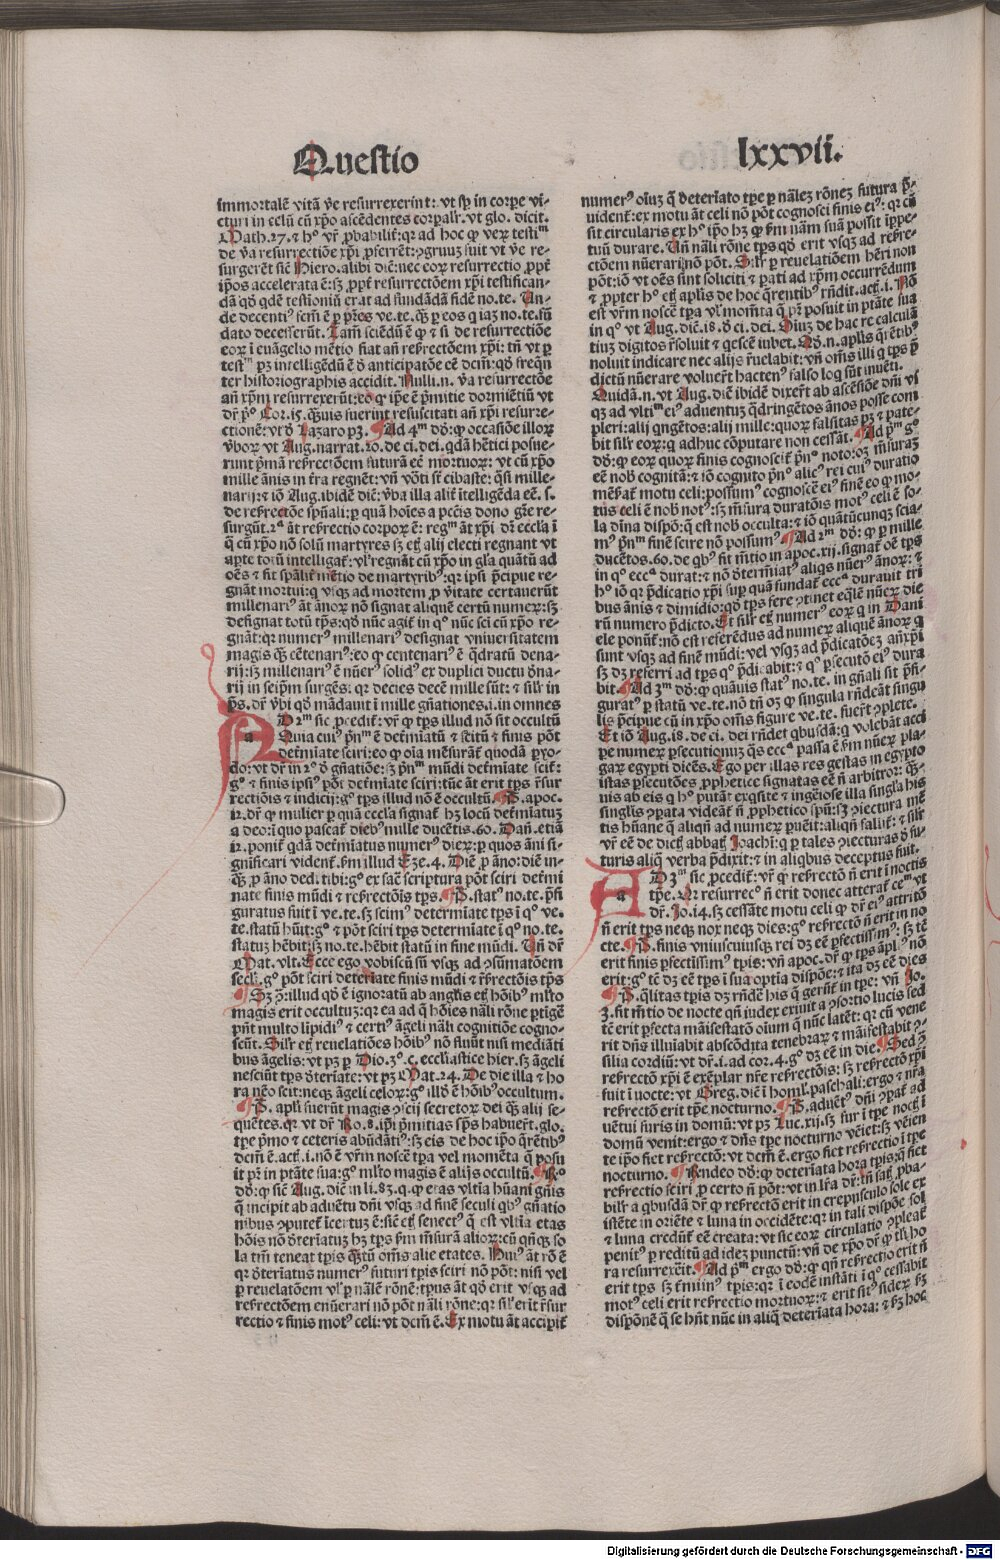 Questio
lxxvii.
immortalē vitā v̄e resurrexerint: vt sp̄ in corpe vi
cturi in celū cū xp̄o ascēdentes corpalr̄. vt glo. dicit.
Math. 27. ⁊ hꝰ vr̄ ꝓbabiliꝰ: qr ad hoc ꝙ veꝝ
de v̄a resurrectiōe xp̄i ꝓferrēt: ꝯgruuꝫ fuit vt v̄e re-
surgerēt sic̄ Hiero. alibi dic̄: nec eoꝝ resurrectio ꝓpt̄
ip̄os accelerata ē: sꝫ ꝓpt̄ resurrectōem xp̄i testifican-
dā qd̄ qdē testioniū erat ad fundādā fidē no. te. Un-
de decentiꝰ
dato decesserūt. Tam̄ sciēdū ē ꝙ ⁊ si de resurrectiōe
eoꝝ i euāgelio mētio fiat an̄ resr̄rectōem xp̄i: tn̄ vt p
ter historiographis accidit. Nulli. n. v̄a resurrectōe
an̄ xp̄m resurrexerūt: eo ꝙ ip̄e ē p̄mitie dormiētiū vt
dr̄ pꝰ Cor. 15. qꝫuis fuerint resuscitati an̄ xp̄i resurre-
ctionē: vt d̄ Lazaro pꝫ. Ad 4m dd̄: ꝙ occasiōe illoꝝ
v̄boꝝ vt Aug. narrat. 20. de ci. dei. qdā hētici posue-
runt p̄mā resr̄rectiōem futurā eē mortuoꝝ: vt cū xp̄o
mille ānis in t̄ra regnēt: vn̄ vōti st̄ ciliaste: q̄si mille-
narij: ⁊ iō Aug. ibidē dic̄: v̄ba illa alit̄ ītelligēda eē. s.
de resr̄rectōe sp̄uali: p quā hoīes a pctīs dono gr̄e re-
surgūt. 2ª āt resr̄rectio corpoꝝ ē: regnū āt xp̄i dr̄ eccl̄a ī
q̄ cū xp̄o nō solū martyres sꝫ etꝫ alij electi regnant vt
a parte totū intelligat̄: vl̓ regnāt cū xp̄o in gl̄a quātū ad
oēs ⁊ fit sp̄alit̄ mētio de martyribꝰ: qr ipsi p̄cipue re-
gnāt mortui: q vsqꝫ ad mortem ꝓ v̄itate certauerūt
millenariꝰ āt ānoꝝ nō signat aliquē certū numeꝝ: sꝫ
designat totū tp̄s: qd̄ nūc agit̄ in qº nūc sci cū xp̄o re-
gnāt: qr numerꝰ millenariꝰ designat vniuersitatem
magis qꝫ cētenariꝰ: eo ꝙ centenariꝰ ē q̄dratū dena-
rij: sꝫ millenariꝰ ē nūerꝰ solidꝰ ex duplici ductu d̄na-
rij in seipm̄ surgēs: qr decies decē mille sūt: ⁊ silr̄ in
ps̄. dr̄ v̄bi qd̄ mādauit ī mille gn̄ationes. i. in omnes
Ad 2m sic ꝓcedit̄: vr̄ ꝙ tp̄s illud nō sit occultū
Quia cuiꝰ p̄nm ē det̄miātū ⁊ scitū ⁊ finis pōt
det̄miate sciri: eo ꝙ oīa mēsurāt̄ quodā pyo-
do: vt dr̄ in 2º d̄ gn̄atiōe: sꝫ p̄nm mūdi det̄miate scit̄:
gº ⁊ finis ipsiꝰ pōt det̄miate sciri: tūc āt erit tp̄s r̄sur
rectiōis ⁊ iudicij: gº tp̄s illud nō ē occultū. P. apoc.
12. dr̄ ꝙ mulier p quā eccl̄a signat̄ hꝫ locū det̄miatuꝫ
a deo: ī quo pascat̄ diebꝰ mille ducētis. 60. Dan̄. etiā
12. ponit̄ qdā det̄miatus numerꝰ dieꝝ: p quos āni si-
gnificari vident̄. ẜm illud Eze. 4. Diē ꝓ āno: diē in-
qꝫ ꝓ āno dedi tibi: gº ex sac̄ scriptura pōt sciri det̄mi
nate finis mūdi ⁊ resr̄rectōis tp̄s. P. statꝰ no. te. p̄fi
guratus fuit ī ve. te. sꝫ scimꝰ determiate tp̄s ī qº ve.
te. statū hūit: gº ⁊ pōt sciri tp̄s determiate ī qº no. te.
statuꝫ hēbit: sꝫ no. te. hēbit statū in fine mūdi. Un̄ dr̄
Mat. vlt. Ecce ego vobiscū sū vsqꝫ ad ꝯsūmatōem
secli. gº pōt sciri deteriate finis mūdi ⁊ r̄srectōis tp̄s
Sꝫ ꝯ̄: illud qd̄ ē ignoratū ab angl̄is etꝫ hōibꝰ ml̓to
magis erit occultuꝫ: qr ea ad q̄ hōies nāli rōne ptigē
pn̄t multo lipidiꝰ ⁊ certiꝰ āgeli nāli cognitiōe cogno-
scūt. Silr̄ etꝫ reuelatiōes hōibꝰ nō fiūt nisi mediāti
bus āgelis: vt pꝫ p Dio. 3º. c. ecclīastice hier. sꝫ āgeli
nesciūt tp̄s d̄teriate: vt pꝫ Mat. 24. De die illa ⁊ ho
ra nēo scit: neqꝫ āgeli celoꝝ: gº illd̄ ē hōibꝰ occultum.
P. apl̄i fuerūt magis ꝯscij secretoꝝ dei qꝫ alij se-
quētes. qr vt dr̄ Ro. 8. ip̄i p̄mitias sp̄s habuer̄t. glo.
tp̄e p̄mo ⁊ ceteris abūdātiꝰ: sꝫ eis de hoc ip̄o q̄rētibꝰ
dcm̄ ē. act. i. nō ē vr̄m noscē tp̄a vel momēta q̄ posu
it pr̄ in ptāte sua: gº ml̓to magis ē alijs occultū. Rº
dd̄: ꝙ sic̄ Aug. dic̄ in li. 83. q. ꝙ etas vltīa hūani gn̄is
q̄ incipit ab aduētu dn̄i vsqꝫ ad finē seculi qbꝰ gn̄atio
nibus ꝯputet̄ īcertuꝫ ē: sic̄ etꝫ senectꝰ q̄ est vltīa etas
hōis nō d̄teriatuꝫ hꝫ tp̄s ẜm m̄surā alioꝝ: cū qn̄qꝫ so
la tm̄ teneat tp̄is qꝫtū om̄s alie etates. Huiꝰ āt rō ē
qr d̄teriatus numerꝰ futuri tp̄is sciri nō pōt: nisi vel
p reuelatōem vl̓ p nālē rōnē: tp̄us āt qd̄ erit vsqꝫ ad
resr̄rectōem enūerari nō pōt nāli rōne: qr sil̓ erit r̄sur
rectio ⁊ finis motꝰ celi: vt dcm̄ ē. Ex motu āt accipit̄
numerꝰ oīuꝫ q̄ deteriato tp̄e p nālēꝫ rōneꝫ futura p̄-
uident̄: ex motu āt celi nō pōt cognosci finis eiꝰ: qr cū
sit circularis ex hº ip̄o hꝫ ꝙ ẜm nām suā possit ip̄pe-
tuū durare. Un̄ nāli rōne tp̄s qd̄ erit vsqꝫ ad resr̄re-
ctōem nūerari nō pōt. Silr̄ p reuelatiōem hēri non
pōt: iō vt oēs sint soliciti ⁊ p̄ati ad xp̄m occurrēdum
⁊ propter hº etꝫ apl̄is de hoc q̄rentibꝰ rn̄dit. act. i. Nō
est vr̄m noscē tp̄a vl̓ momēta q̄ pr̄ posuit in ptāte sua
in qº vt Aug. dic̄. 18. d̄ ci. dei. Oīuꝫ de hac re calculā
tiuꝫ digitos r̄soluit ⁊ qescē iubet. Qd̄. n. apl̄is q̄rētibꝰ
noluit indicare nec alijs r̄uelabit: vn̄ om̄s illi q tp̄s p̄
dictū nūerare voluer̄t hactenꝰ falso loq̄ sūt inuēti.
Quidā. n. vt Aug. dic̄ ibidē dixer̄t ab ascēsiōe dn̄i vs
qꝫ ad vltīm eiꝰ aduentuꝫ q̄dringētos ānos posse com
pleri: alij qngētos: alij mille: quoꝝ falsitas pꝫ ⁊ pate-
bit silr̄ eoꝝ: q adhuc cōputare non cessāt. Ad p̄m gº
dd̄: ꝙ eoꝝ quoꝝ finis cognoscit̄ p̄nº noto: oꝫ m̄suraꝫ
eē nob̄ cognitā: ⁊ iō cognito p̄nº alicꝰ rei cuiꝰ duratio
mēsurat̄ motu celi: possumꝰ cognoscē eiꝰ finē eo ꝙ mo-
tus celi ē nob̄ notꝰ: sꝫ m̄sura duratōis motꝰ celi ē so-
la dīna dispō: q̄ est nob̄ occulta: ⁊ iō quātūcunqꝫ scia-
mꝰ p̄nm finē scire nō possumꝰ. Ad 2m dd̄: ꝙ p mille
ducētos. 60. de qbꝰ fit m̄tio in apoc. xij. signat̄ oē tp̄s
in qº eccª durat: ⁊ nō d̄termīatꝰ aliqs nūerꝰ ānoꝝ: ⁊
hº iō qr p̄dicatio xp̄i sup quā fundat̄ eccª durauit tri
bus ānis ⁊ dimidio: qd̄ tp̄s fere ꝯtinet eq̄lē nūeꝝ die
rū numero p̄dicto. Et silr̄ etꝫ numerꝰ eoꝝ q in Dani
ele ponūt̄. nō est referēdus ad numeꝝ aliquē ānoꝝ q
sunt vsqꝫ ad finē mūdi: vel vsqꝫ ad p̄dicatōeꝫ an̄xp̄i
sꝫ dꝫ referri ad tp̄s qº p̄dicabit: ⁊ qº psecutō eiꝰ dura
bit. Ad 3m dd̄: ꝙ quāuis statꝰ no. te. in gn̄ali sit p̄fi-
guratꝰ p statū ve. te. nō tn̄ oꝫ ꝙ singula rn̄deāt singu
lis p̄cipue cū in xp̄o om̄s figure ve. te. fuer̄t ꝯplete.
Et iō Aug. 18. de ci. dei rn̄det qbusdā: q volebāt acci
pe numeꝝ psecutionuꝫ q̄s eccª passa ē ẜm nūeꝝ pla-
gaꝝ egypti dicēs. Ego per illas res gestas in egypto
istas psecutōes ꝓphetice signatas eē n̄ arbitror: qꝫ-
nis ab eis q hº putāt exq̄site ⁊ ingēiose illa singla his
singl̄is ꝯpata videāt̄ n̄ ꝓphetico sp̄u: sꝫ ꝯiectura mē
tis hūane q̄ aliqn̄ ad numeꝝ puēit: aliqn̄ fallit̄: ⁊ silr̄
vr̄ eē de dictꝫ abbatꝫ Joachi: q p tales ꝯiecturas d̄ fu-
turis aliq̄ verba p̄dixit: ⁊ in aliqbus deceptus fuit.
Ad 3m sic ꝓcedit̄: vr̄ ꝙ resr̄rectō n̄ erit ī noctis
tp̄e. Qr resurrecꝰ n̄ erit donec atterat̄ cem̄ vt
dr̄. Jo. 14. sꝫ cessāte motu celi ꝙ dr̄ eiꝰ attritō
n̄ erit tp̄s neqꝫ nox neqꝫ dies: gº resr̄rectō n̄ erit in no
cte. P. finis vniuscuiusqꝫ rei dꝫ eē pfectissimꝰ: sꝫ tc̄
erit finis pfectissimꝰ tp̄is: vn̄ apoc. dr̄ ꝙ tp̄s āpliꝰ nō
erit: gº tc̄ dꝫ eē tp̄s ī sua optīa dispōe: ⁊ ita dꝫ eē dies
P. q̄litas tp̄is dꝫ rn̄dē his q̄ gerūt̄ in tp̄e: vn̄ Jo.
3. fit m̄tio de nocte qn̄ iudex exiuit a ꝯsortio lucis sed
tc̄ erit pfecta māifestatō oīum q̄ nūc latēt: qr cū vene
rit dn̄s illuīabit abscōdita tenebraꝝ ⁊ māifestabit ꝯ-
silia cordiū: vt dr̄. i. ad cor. 4. gº dꝫ eē in die. Sed ꝯ̄
resr̄rectō xp̄i ē exēplar nr̄e resr̄rectōis: sꝫ resr̄rectō xp̄i
fuit ī nocte: vt Greg. dic̄ ī homł. paschali: ergo ⁊ nr̄a
resr̄rectō erit tp̄e nocturno. P. aduētꝰ dn̄i ꝯpat̄ ad
uētui furis in domū: vt pꝫ Luc. xij. sꝫ fur ī tp̄e noctꝭ ī
domū venit: ergo ⁊ dn̄s tp̄e nocturno vēiet: sꝫ veien
te ip̄o fiet resr̄rectō: vt dcm̄ ē. ergo fiet resr̄rectio ī tp̄e
nocturno. Rn̄deo dd̄: ꝙ deteriata hora tp̄is: q̄ fiet
resr̄rectio sciri ꝓ certo n̄ pōt: vt in lr̄a dr̄: tn̄ satꝫ ꝓba-
bilr̄ a qbusdā dr̄ ꝙ resr̄rectō erit in crepusculo sole ex
istēte in oriēte ⁊ luna in occidēte: qr in tali dispōe sol
⁊ luna credūt̄ eē creata: vt sic eoꝝ circulatio ꝯpleat̄
penitꝰ p reditū ad ideꝫ punctū: vn̄ de xp̄o dr̄ ꝙ tl̄i ho
ra resurrexit. Ad p̄m ergo dd̄: ꝙ qn̄ resr̄rectio erit n̄
erit tp̄s sꝫ t̄minꝰ tp̄is: qr ī eodē instāti ī qº cessabit
motꝰ celi erit resr̄rectio mortuoꝝ: ⁊ erit sitꝰ sideꝝ ẜm
dispōnē q̄ se hn̄t nūc in aliq̄ deteriata hora: ⁊ ẜm hoc
Digitalisierung gefördert durch die Deutsche Forschungsgemeinschaft - DFG